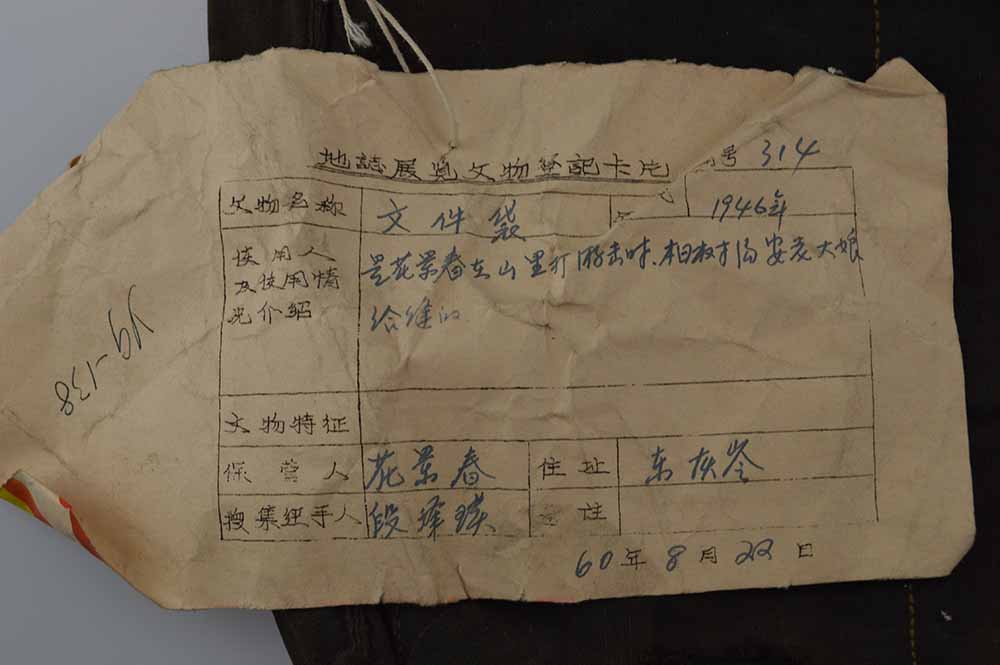 地誌展览文物登記卡片 号 314
文物名称 文件袋 1946年
使用人 是花景春在山里打游击时、柏树沟安老大娘
及使用情 给缝的
况介绍
文物特征
保管人 花景春 住址 东灰岺
搜集经手人 段 瑛 注
60年8月22日
yg-138